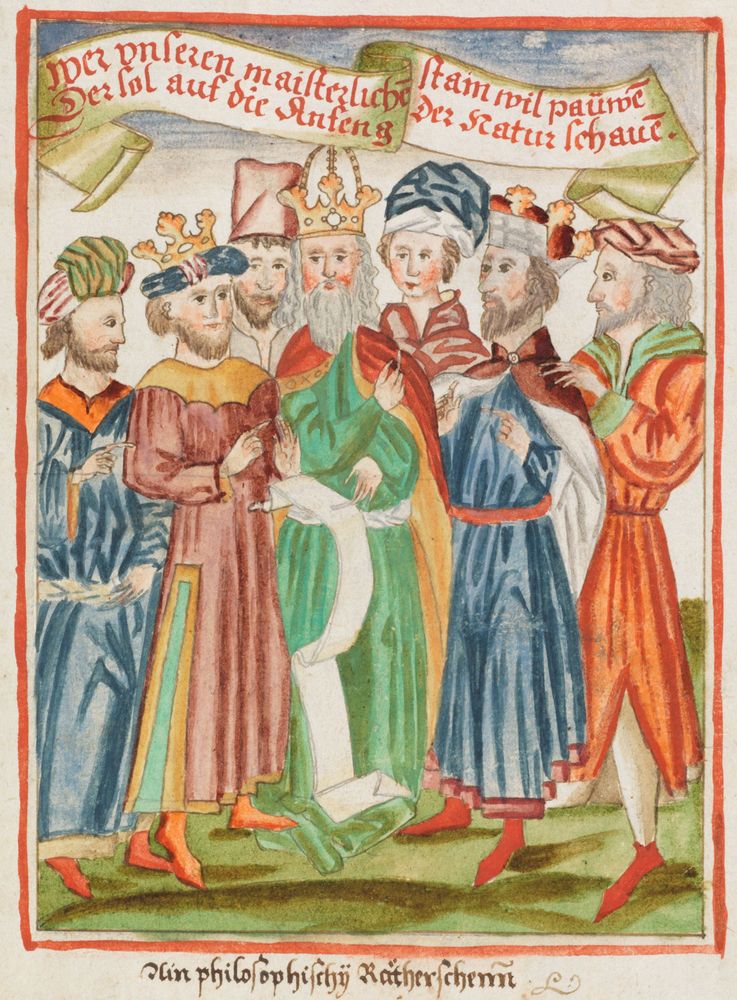 wer vnseren maisterlichē stam wil paüwē
Der sol auf die Anfeng der Natur schauē.
Ain philosophischÿ Rätherschenn